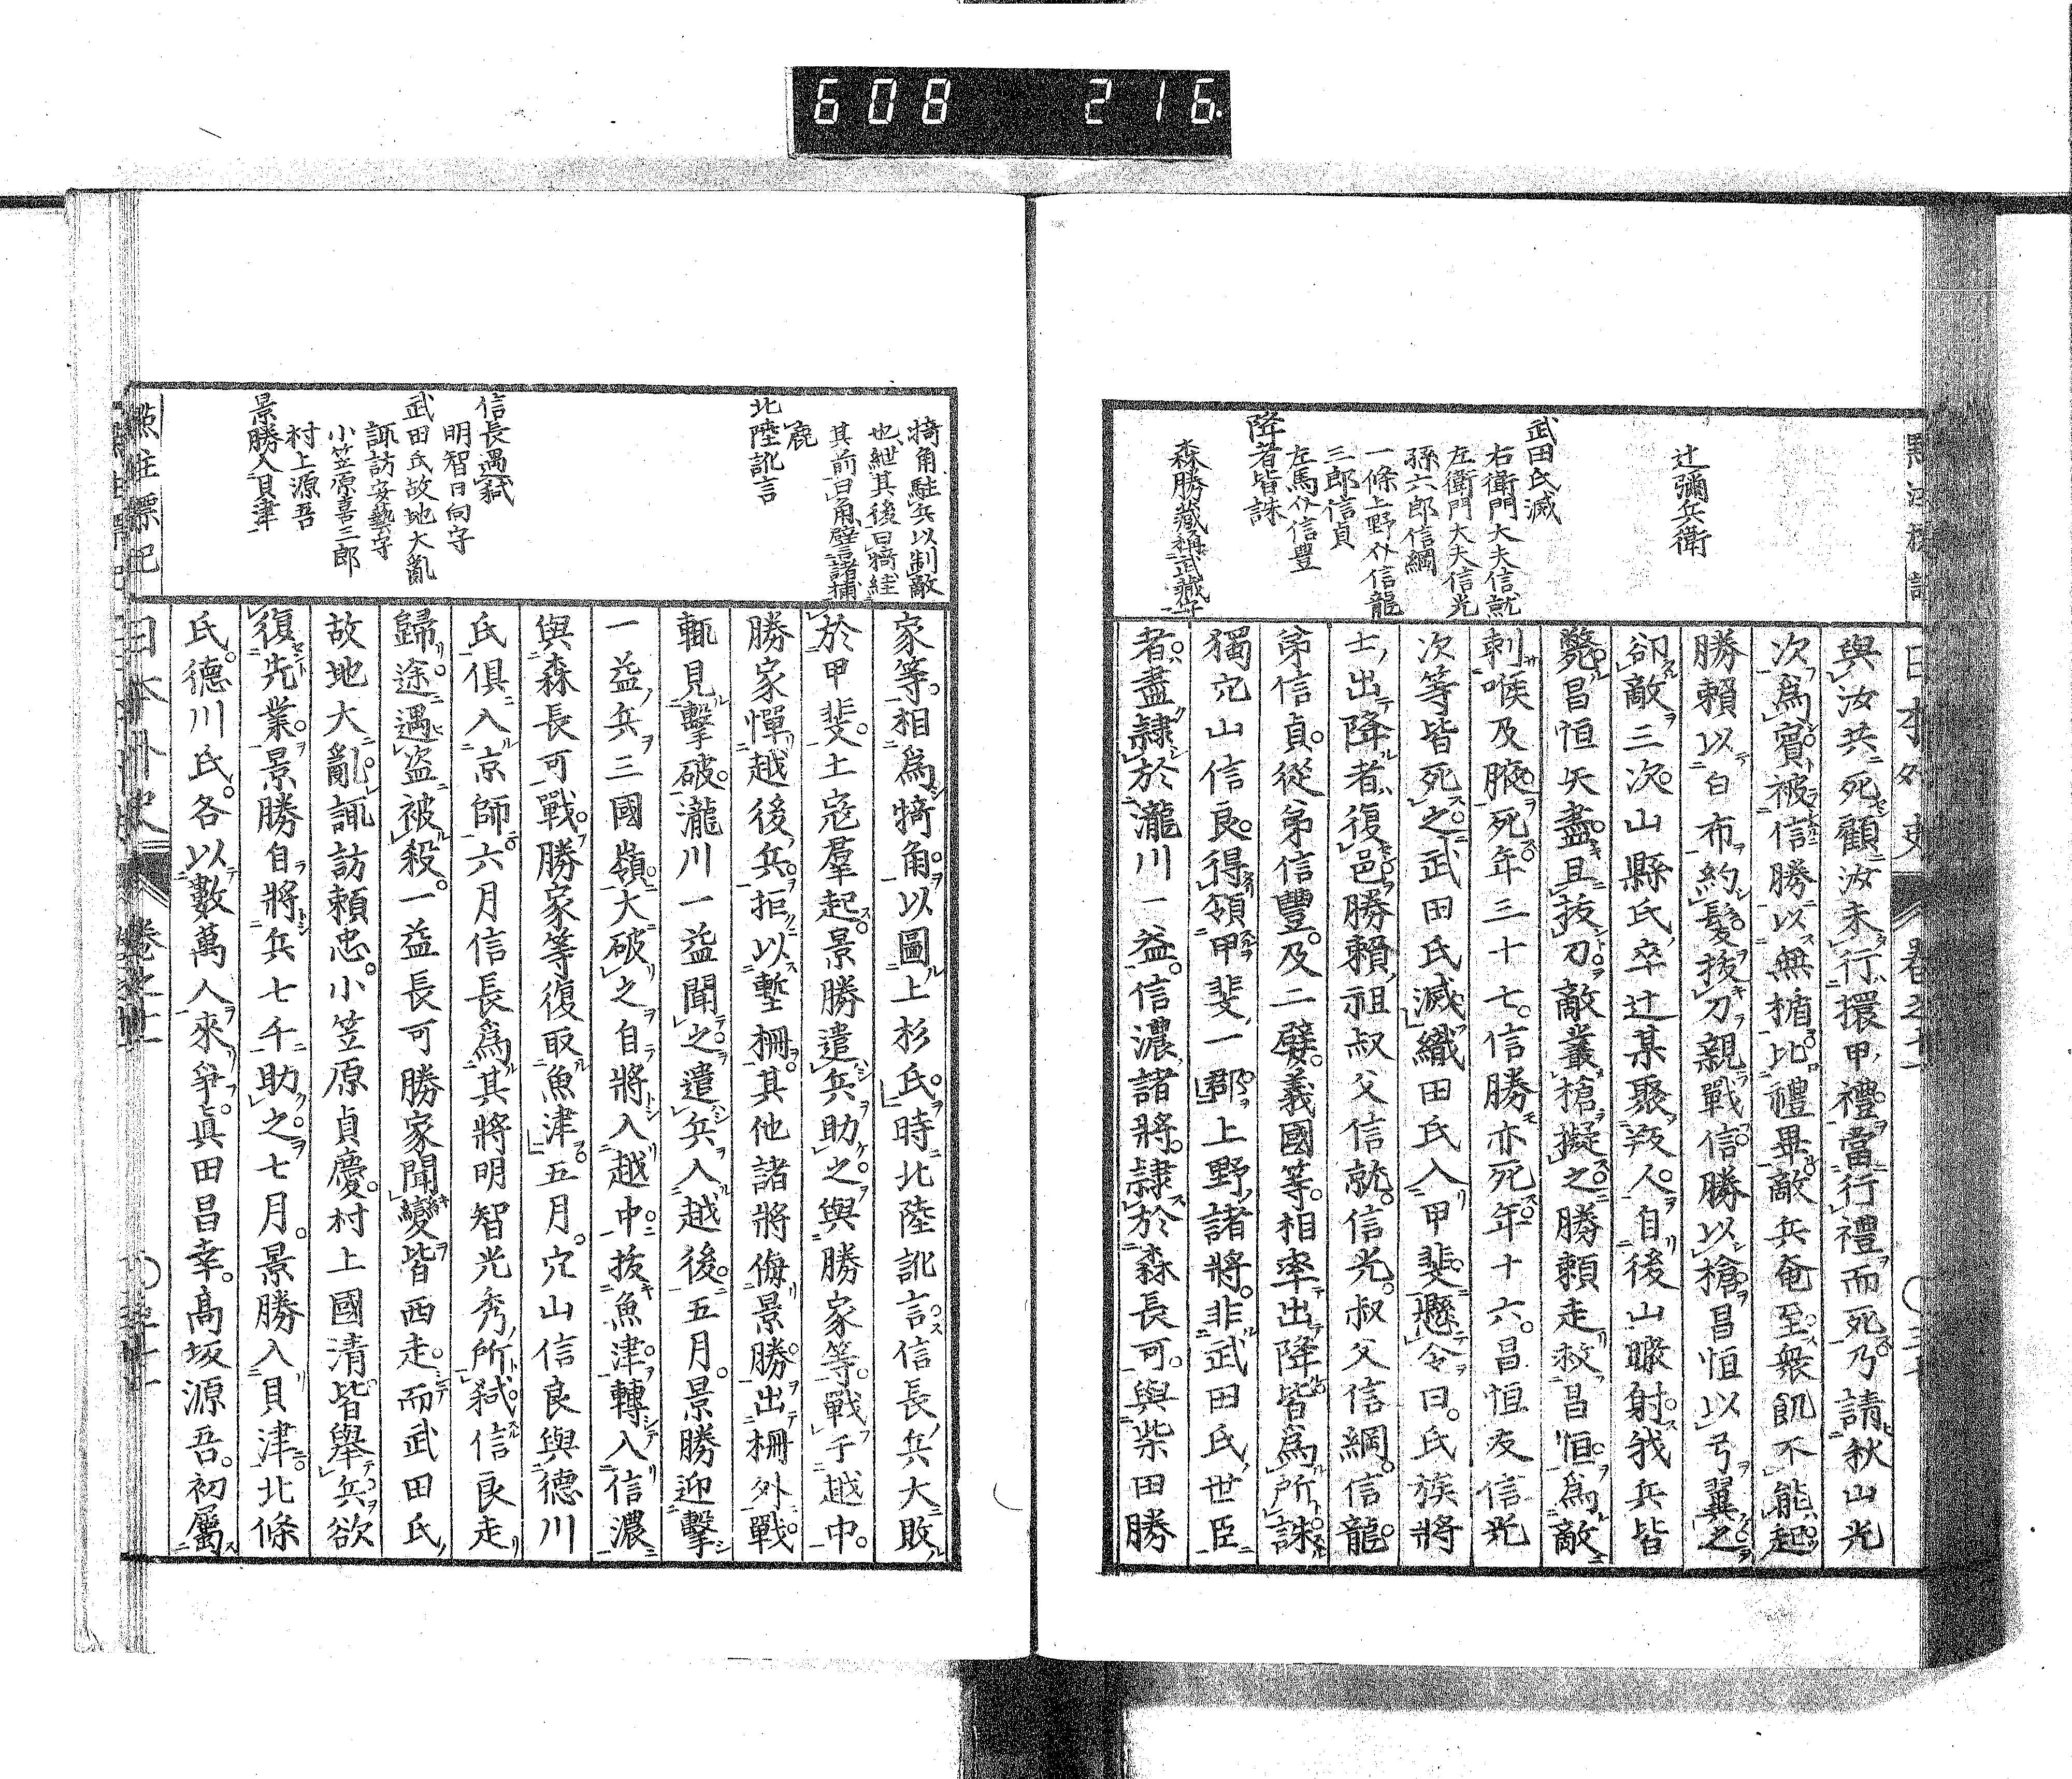 608 216.
辻彌兵衛
武田氏滅
右衛門大夫信就
左衛門大夫信光
孫六郎信綱
一條上野介信龍
三郎信貞
左馬介信豐
降者皆誅
森勝藏稱武藏守
與汝共死顧汝未行擐甲禮當行禮而死乃請秋山光
次爲賓被信勝以無楯比禮畢敵兵奄至衆飢不能起
勝賴以白布約髮拔刀親戰信勝以槍昌恒以弓翼之
卻敵三次山縣氏卒辻某聚叛人自後山瞰射我兵皆
斃昌恒矢盡且拔刀敵叢槍擬之勝賴走救昌恒爲敵
刺喉及腋死年三十七信勝亦死年十六昌恒友信光
次等皆死之武田氏滅織田氏入甲斐懸令曰氏族將
士出降者復邑勝賴祖叔父信就信光叔父信綱信龍
弟信貞從弟信豐及二嬖義國等相率出降皆爲所誅
獨穴山信良得領甲斐一郡上野諸將非武田氏世臣
者盡隷於瀧川一益信濃諸將隷於森長可與柴田勝
犄角駐兵以制敵
也紲其後曰犄絓
其前曰角譬諸捕
鹿
北陸訛言
信長遇弑
明智日向守
武田氏故地大亂
諏訪安藝守
小笠原喜三郎
村上源吾
景勝入貝津
家等相爲犄角以圖上杉氏時北陸訛言信長兵大敗
於甲斐土寇羣起景勝遣兵助之與勝家等戰于越中
勝家憚越後兵拒以塹柵其他諸將侮景勝出柵外戰
輒見擊破瀧川一益聞之遣兵入越後五月景勝迎擊
一益兵三國嶺大破之自將入越中拔魚津轉入信濃
與森長可戰勝家等復取魚津五月穴山信良與德川
氏俱入京師六月信長爲其將明智光秀所弑信良走
歸途遇盜被殺一益長可勝家聞變皆西走而武田氏
故地大亂諏訪賴忠小笠原貞慶村上國清皆舉兵欲
復先業景勝自將兵七千助之七月景勝入貝津北條
氏德川氏各以數萬人來爭眞田昌幸高坂源吾初屬